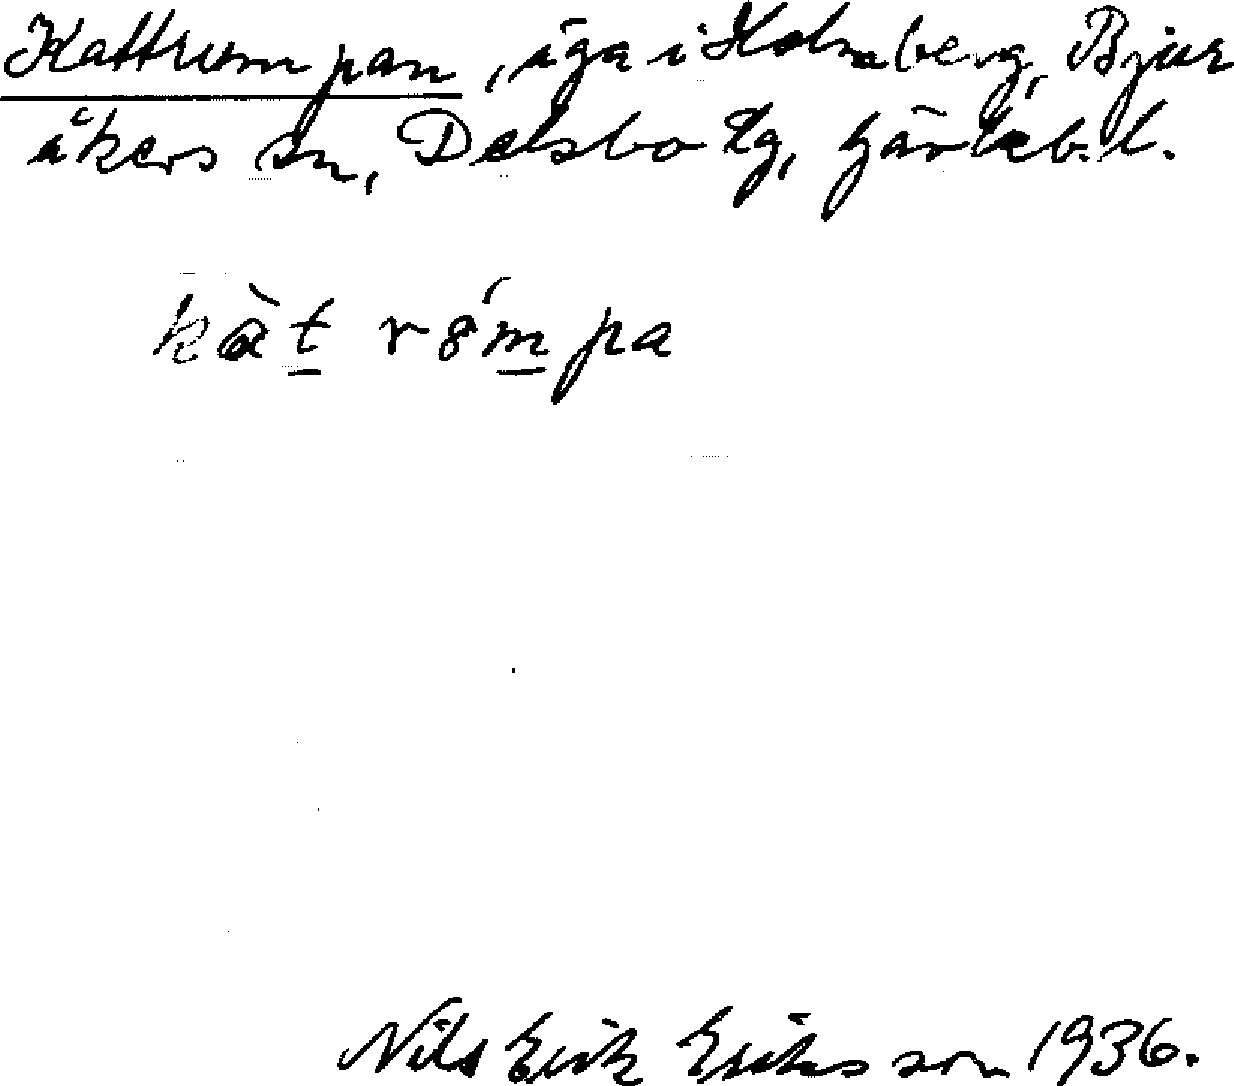 Kattrumpan, äga i Holmberg, Bjur
åkers sn, Delsbo tg, Gävleb. l.
kàt rómpa
Nils Erik Eriksson 1936.